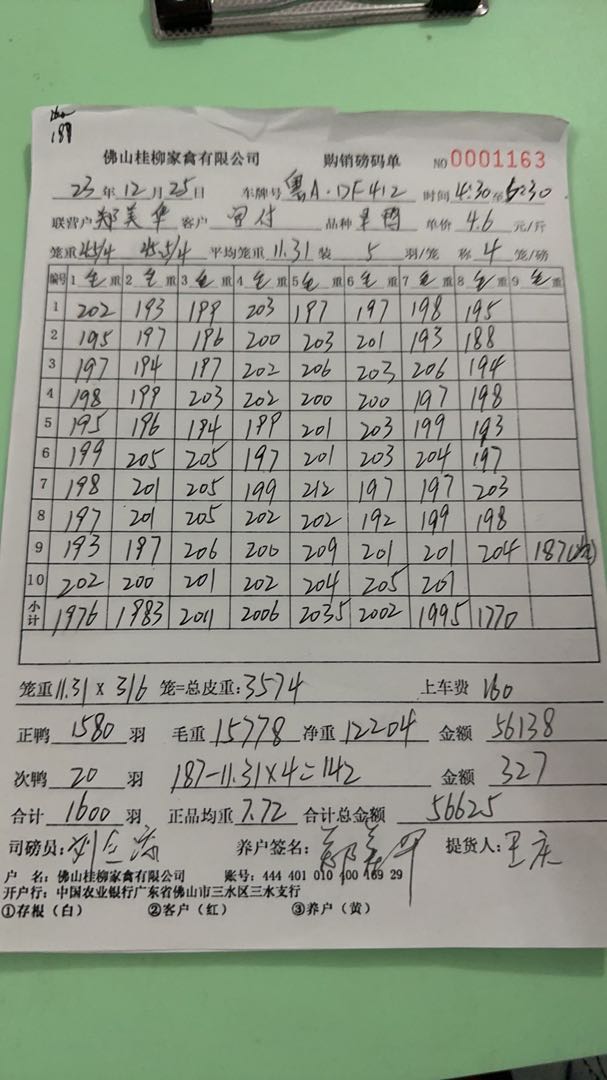 160
187
佛山桂柳家禽有限公司 购销磅码单 NO 0001163
23 年 12 月 25 日 车牌号 粤A·DF412 时间 4:30 至 5:30
联营户 郑美华 客户 品种 单价 4.6 元/斤
笼重 45/4 45.5/4 平均笼重 11.31 装 5 羽/笼 称 4 笼/磅
编号 1 毛 重 2 毛 重 3 毛 重 4 毛 重 5 毛 重 6 毛 重 7 毛 重 8 毛 重 9 毛 重
1 202 193 199 203 197 197 198 195
2 195 197 196 200 203 201 193 188
3 197 194 197 202 206 203 206 194
4 198 199 203 202 200 200 197 198
5 195 196 194 199 201 203 199 193
6 199 205 205 197 201 203 204 197
7 198 201 205 199 212 197 197 203
8 197 201 205 202 202 192 199 198
9 193 197 206 200 209 201 201 204 187
10 202 200 201 202 204 205 201
小计 1976 1983 2011 2006 2035 2002 1995 1770
笼重 11.31 × 316 笼=总皮重: 3574 上车费 160
正鸭 1580 羽 毛重 15778 净重 12204 金额 56138
次鸭 20 羽 187-11.31×4=142 金额 327
合计 1600 羽 正品均重 7.72 合计总金额 56625
司磅员: 养户签名: 郑美华 提货人: 王庆
户 名: 佛山桂柳家禽有限公司 账号: 444 401 010 400 169 29
开户行: 中国农业银行广东省佛山市三水区三水支行
①存根（白） ②客户（红） ③养户（黄）